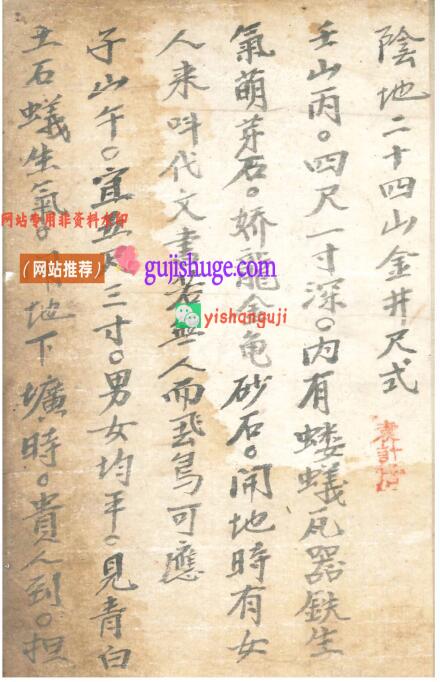 陰地二十四山金井尺式
壬山丙。四尺一寸深。内有螻蟻瓦器鉄生
氣萌芽石。娇龍金龟砂石。開地時有女
人来呌代文書。無人而飛鳥可應
子山午。宜三寸。男女均平。見青白
土石蟻生氣。地下壙時。貴人到。担
网站专用非资料水印
（网站推荐）
gujishuge.com
yishanguji